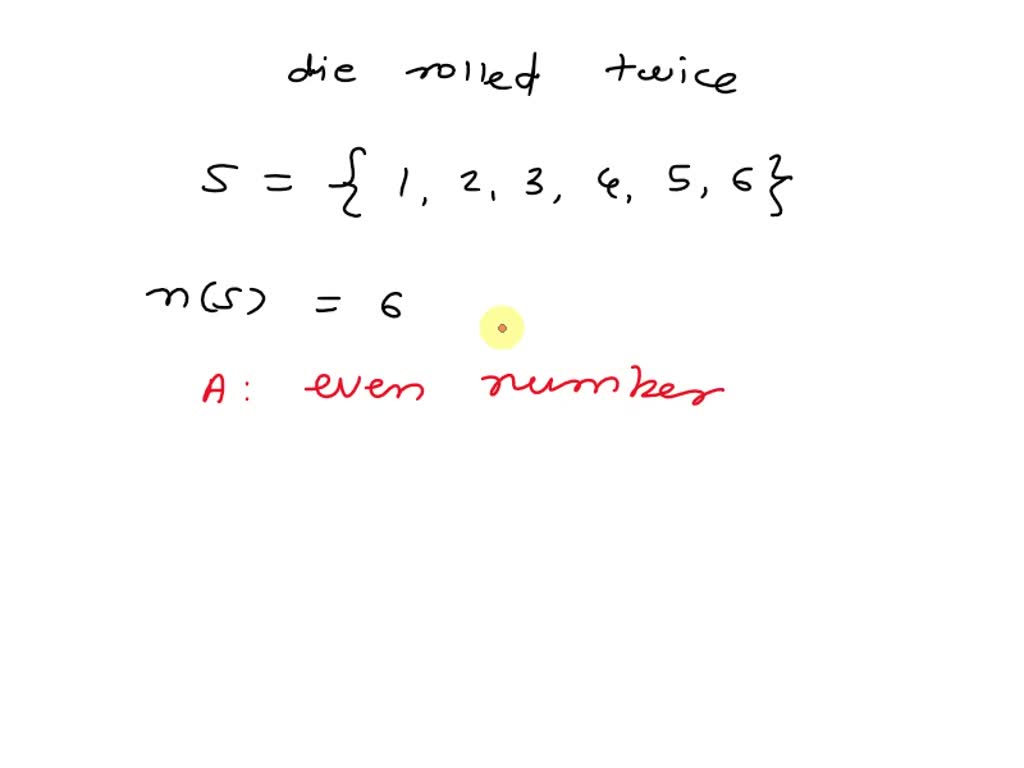 die rolled twice
S = { 1, 2, 3, 4, 5, 6}
n(S) = 6
A: even number